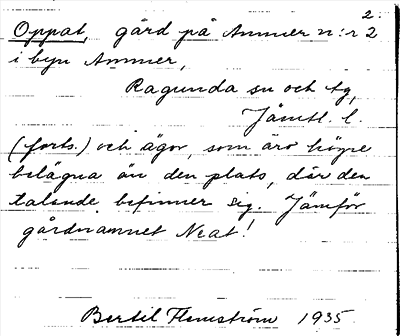 2.
Oppat, gård på Ammer n:r 2
i byn Ammer,
Ragunda sn och tg,
Jämtl. l.
(forts.) och ägor, som äro högre
belägna än den plats, där den
talande befinner sig. Jämför
gårdnamnet Neat!
Bertil Flemström 1935.